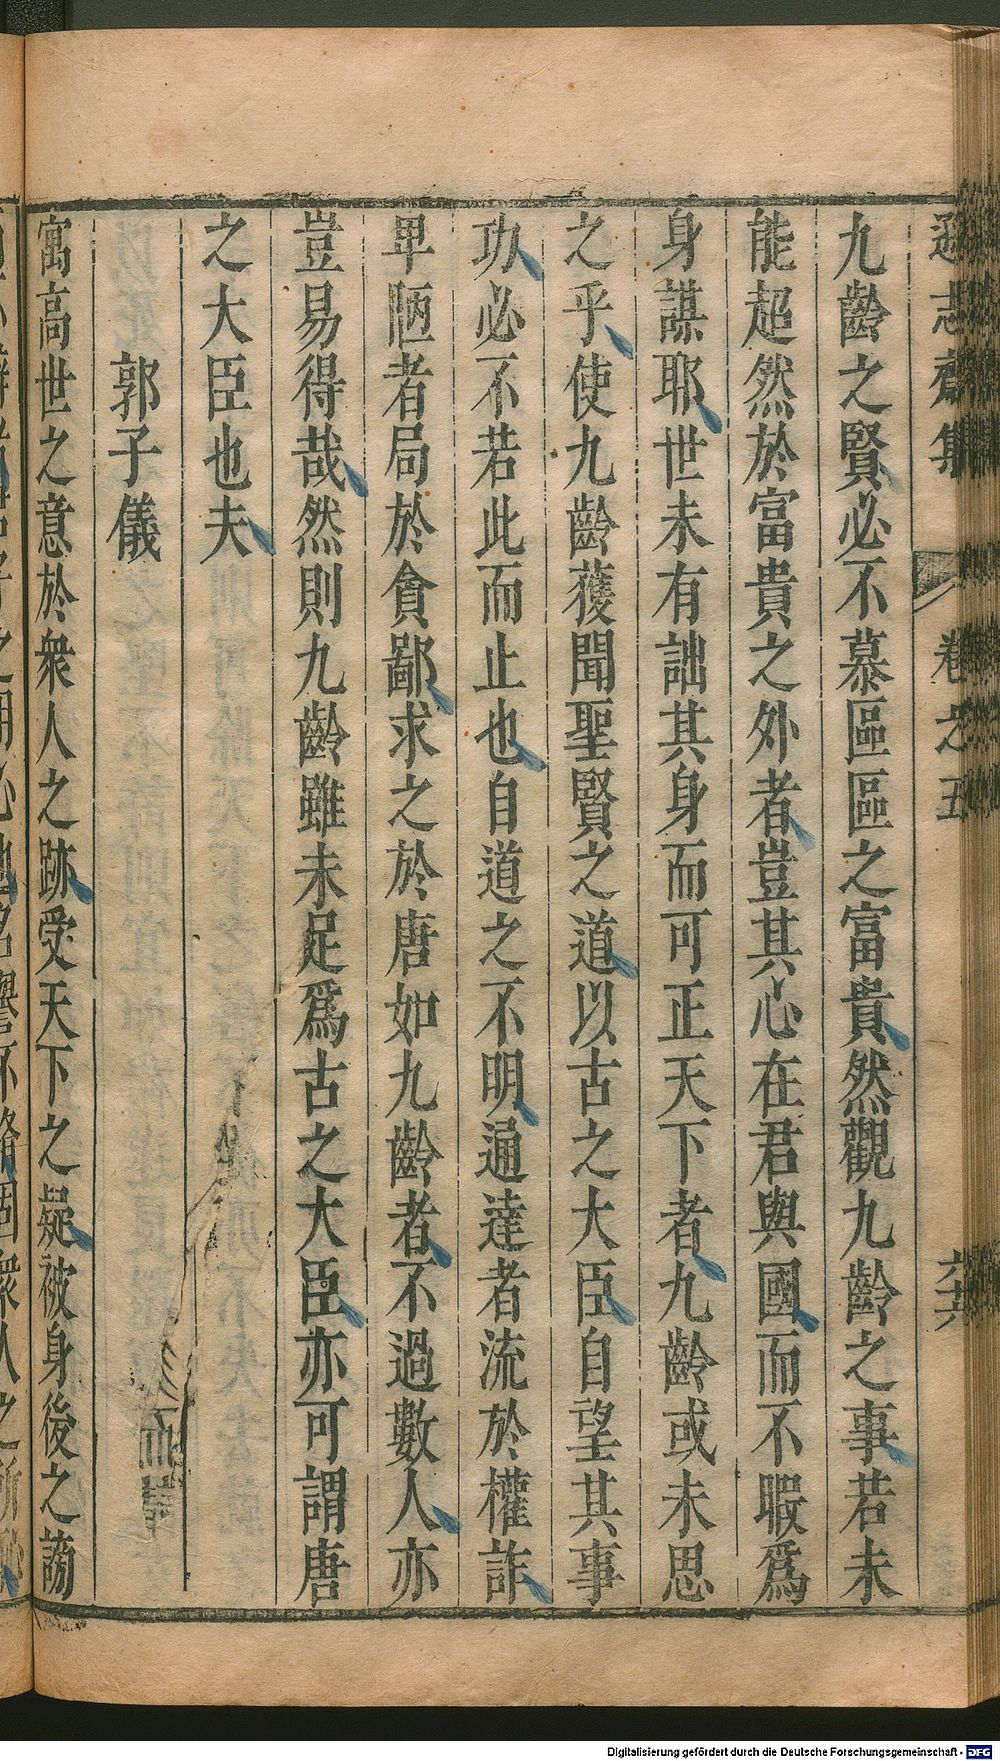 遜志齋集 卷之五 六十六
九齡之賢必不慕區區之富貴然觀九齡之事若未
能超然於富貴之外者豈其心在君與國而不暇爲
身謀耶世未有詘其身而可正天下者九齡或未思
之乎使九齡獲聞聖賢之道以古之大臣自望其事
功必不若此而止也自道之不明通達者流於權詐
卑陋者局於貪鄙求之於唐如九齡者不過數人亦
豈易得哉然則九齡雖未足爲古之大臣亦可謂唐
之大臣也夫
郭子儀
寓高世之意於衆人之跡受天下之疑被身後之謗
Digitalisierung gefördert durch die Deutsche Forschungsgemeinschaft - DFG